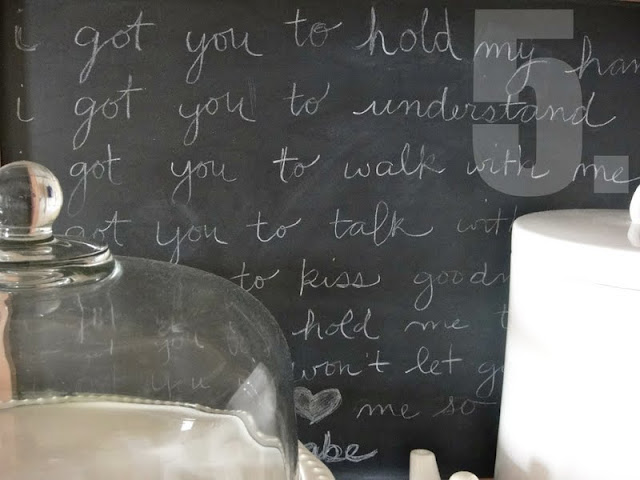 i got you to hold my han
i got you to understand
got you to walk with me
got you to talk with
to kiss goodn
you hold me t
you won't let go
♥ me so
babe
5.